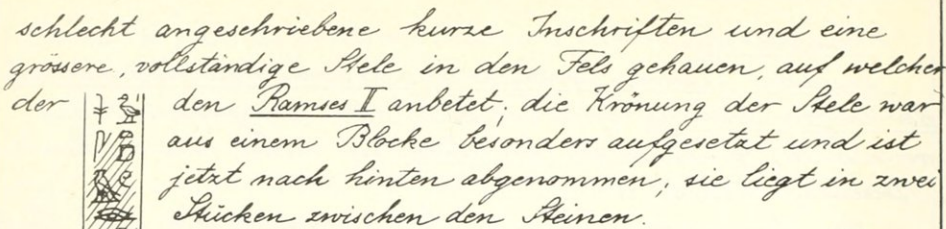 schlecht angeschriebene kurze Inschriften und eine
grössere, vollständige Stele in den Fels gehauen, auf welcher
der den Ramses II anbetet; die Krönung der Stele war
aus einem Blocke besonders aufgesetzt und ist
jetzt nach hinten abgenommen; sie liegt in zwei
Stücken zwischen den Steinen.